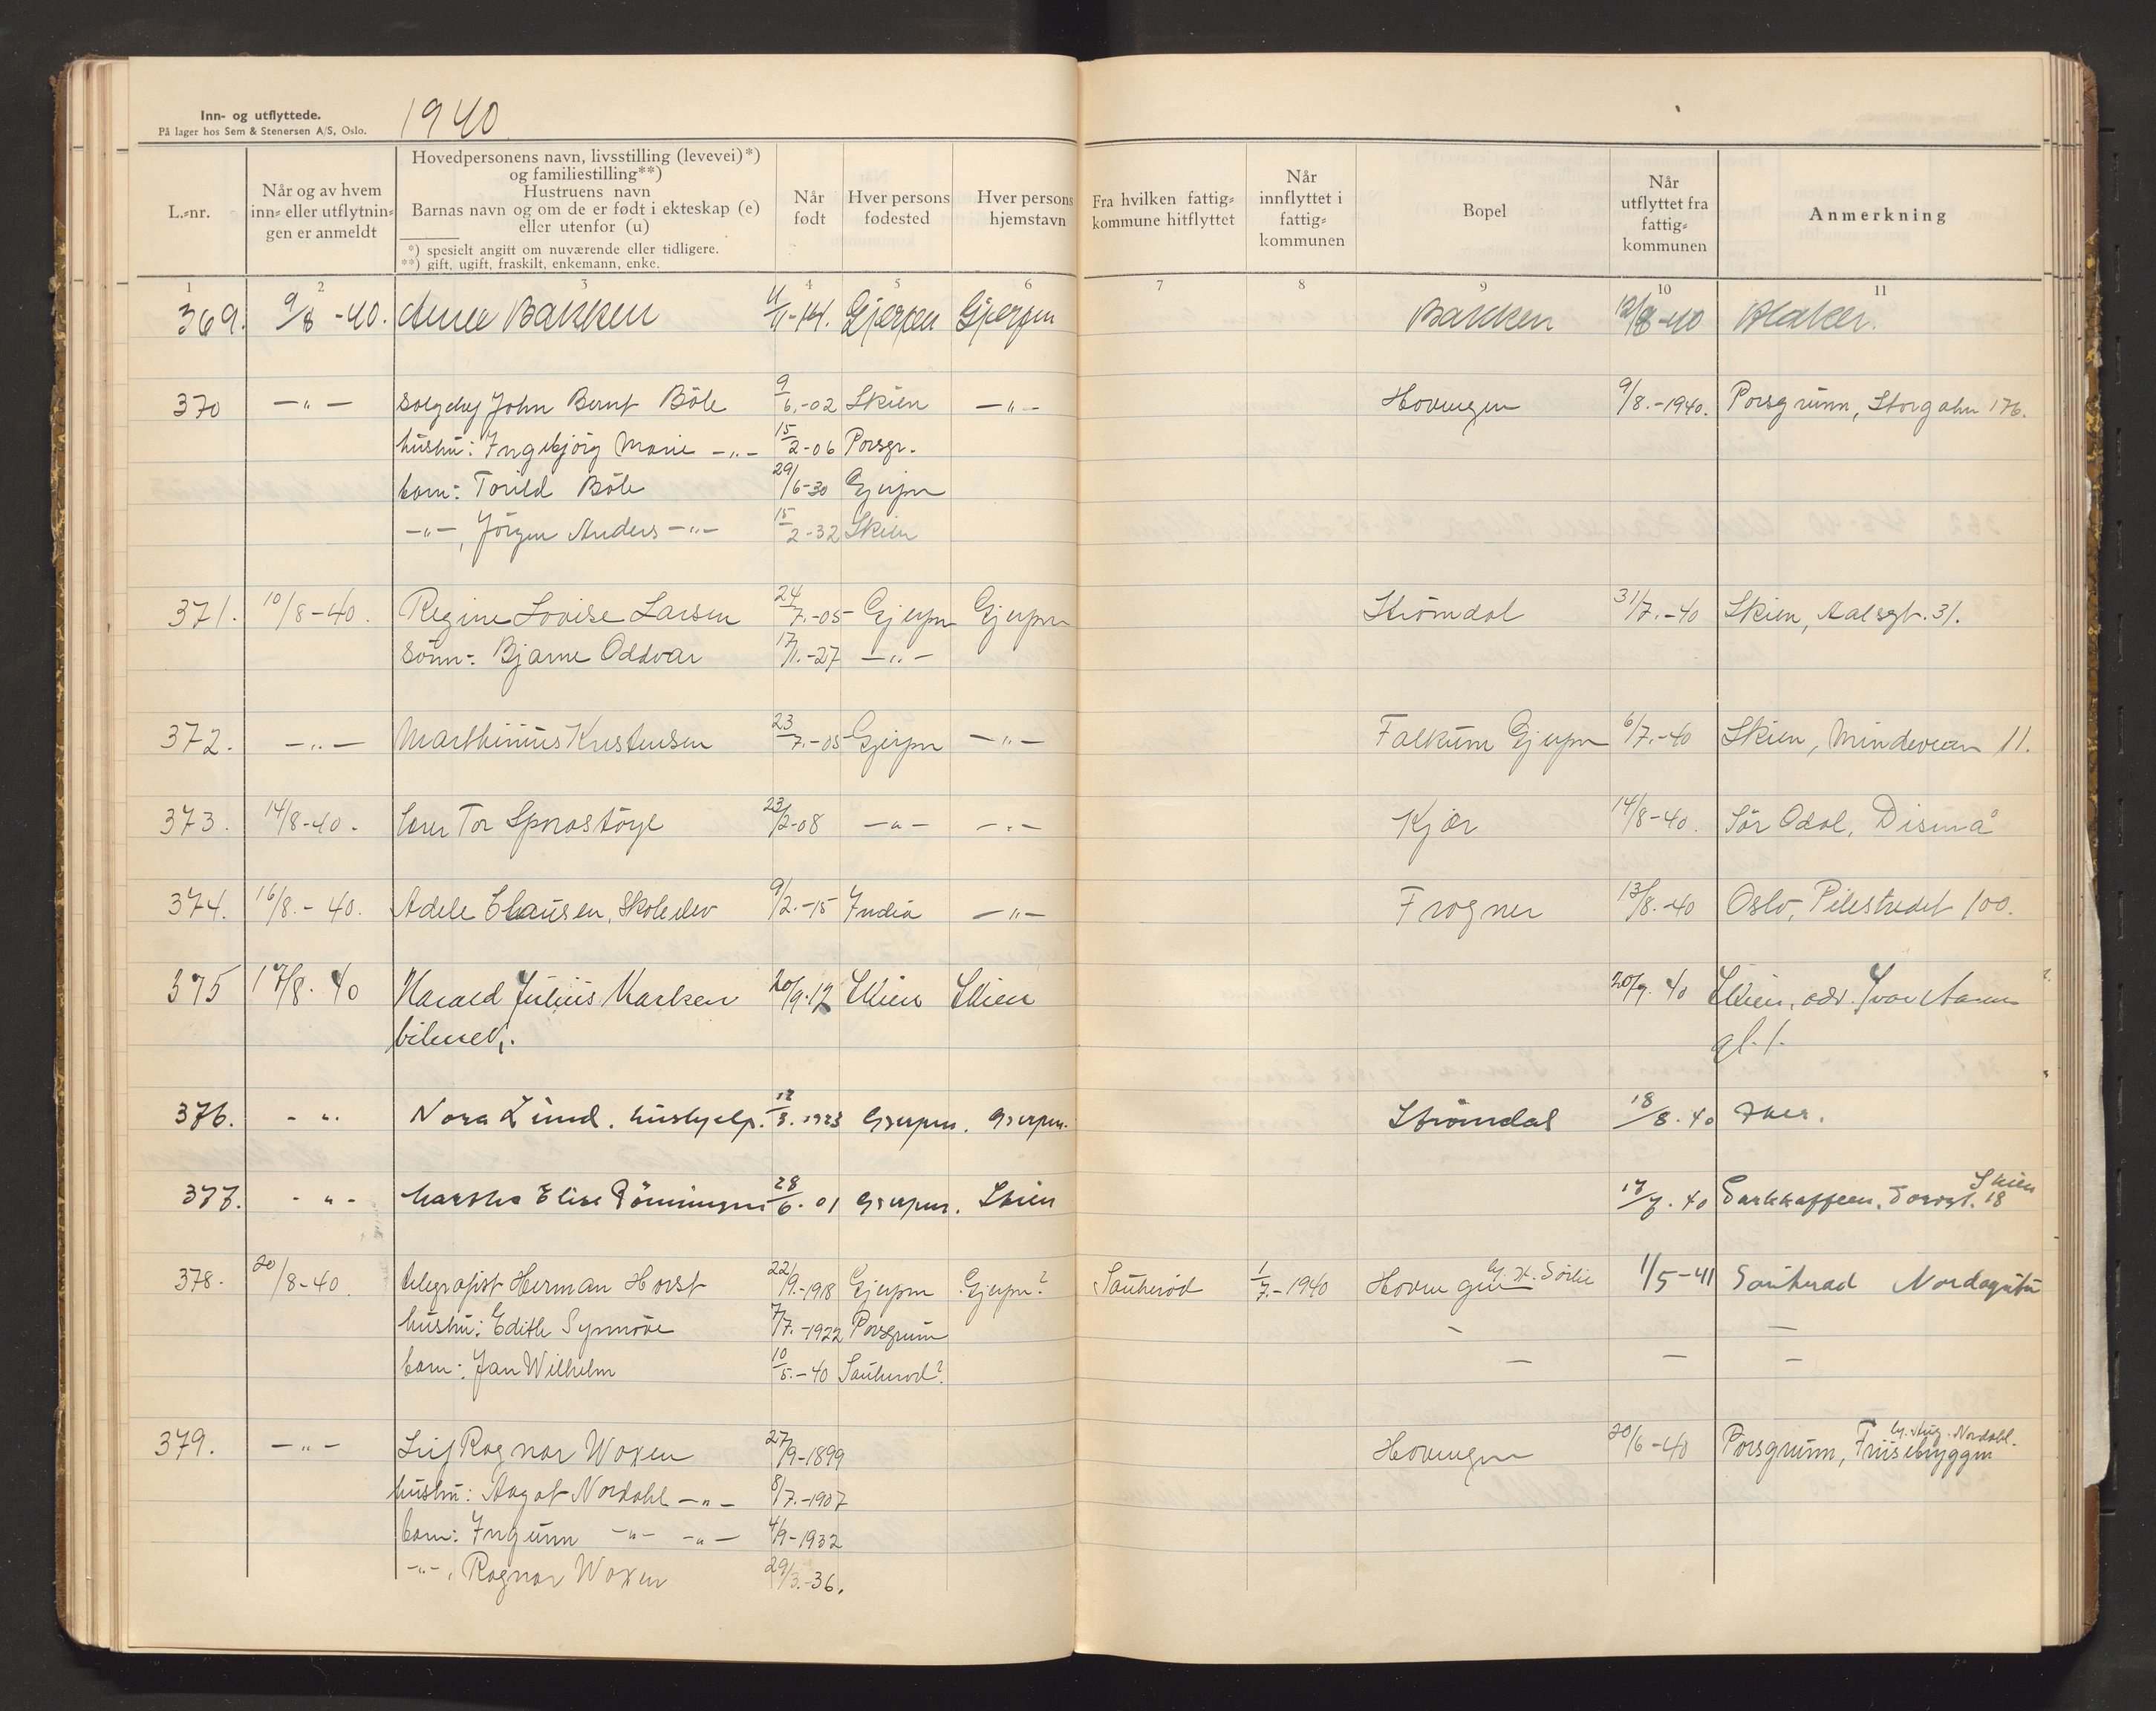 Inn- og utflyttede.
På lager hos Sem & Stenersen A/S, Oslo.
1940
L.-nr.
Når og av hvem inn- eller utflytnin- gen er anmeldt
Hovedpersonens navn, livsstilling (levevei)*)
og familiestilling**)
Hustruens navn
Barnas navn og om de er født i ekteskap (e)
eller utenfor (u)
*) spesielt angitt om nuværende eller tidligere.
**) gift, ugift, fraskilt, enkemann, enke.
Når født
Hver persons fødested
Hver persons hjemstavn
Fra hvilken fattig- kommune hitflyttet
Når innflyttet i fattig- kommunen
Bopel
Når utflyttet fra fattig- kommunen
Anmerkning
1 2 3 4 5 6 7 8 9 10 11
369. 9/8 -40. Bakken 4/11-14. Gjerpen Gjerpen Bakken 12/8-40 Blaker.
370 -"- John Bernt Böle 9/6.-02 Skien -"- Hovengen 9/8.-1940. Porsgrunn, Storgaten 176.
hustru: Ingebjörg Marie -"- 15/2-06 Porsgr.
barn: Torild Böle 29/6-30 Gjerpen
-"-, Jörgen Anders -"- 15/2-32 Skien
371. 10/8-40. Regine Lovise Larsen 24/7.-05 Gjerpen Gjerpen Strömdal 31/7.-40 Skien, Aalsgt. 31.
sönn: Bjarne Oddvar 17/1.-27 -"-
372. -"- Marthinius Kristensen 23/7.-05 Gjerpen -"- Falkum Gjerpen 6/7.-40 Skien, Mindeveien 11.
373. 14/8-40. Tor 23/2-08 -"- -"- Kjær 14/8-40. Sör Odal, Disenå
374. 16/8.-40. Adele Clausen, Skoleelev 9/2.-15 India -"- Frogner 13/8.-40 Oslo, Pilestredet 100.
375 17/8. 40 Harald Julius Karlsen 20/9.12 Skien Skien 20/7. 40 Skien, adr. Ivar Aasens
gt. 1.
376. -"- Nora Lund. hushjelp. 12/3. 1923 Gjerpen. Gjerpen. Strömdal 18/8. 40
377. -"- Martha Elise Pönningen 28/6. 01 Gjerpen. Skien 17/7. 40 Parkkaffeen, Torvgt. 18 Skien
378. 20/8-40. telegrafist Herman Horst 22/9.-1918 Gjerpen Gjerpen? Sauherad 1/7.-1940 Hovengen 1/5-41 Sauherad Nordagutu
hustru: Edith Synnöve 7/7.-1922 Porsgrunn - -
barn: Jan Wilhelm 10/5.-40 Sauherad? - - -
379. -"- Leif Ragnar Woxen 27/9-1899 Hovengen 20/6-40 Porsgrunn, Friisebryggen
hustru: Aagot Nordahl -"- 8/7.-1907
barn: Ingunn -"- -"- 4/9-1932
-"-, Ragnar Woxen 29/3.-36.